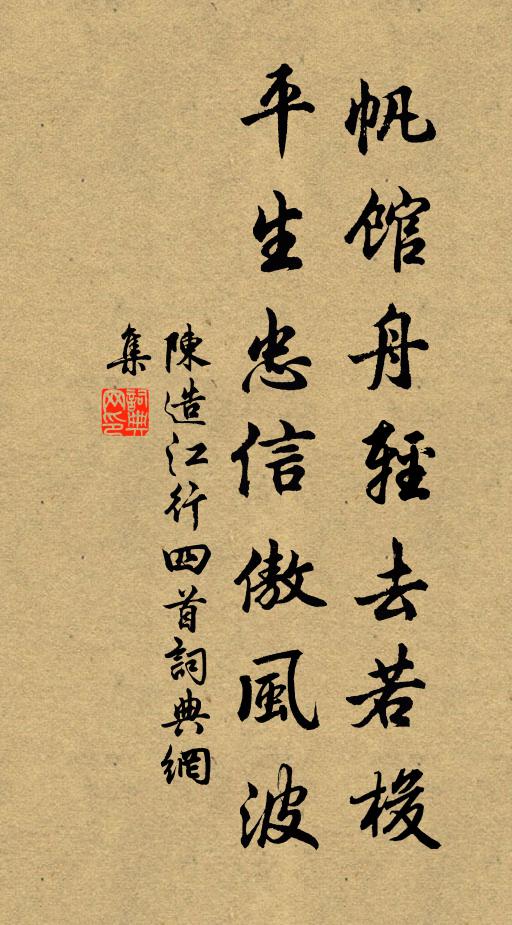 帆馆舟輕去若梭
平生忠信傲風波
陳造江行四首詞典網
集
詞典網印